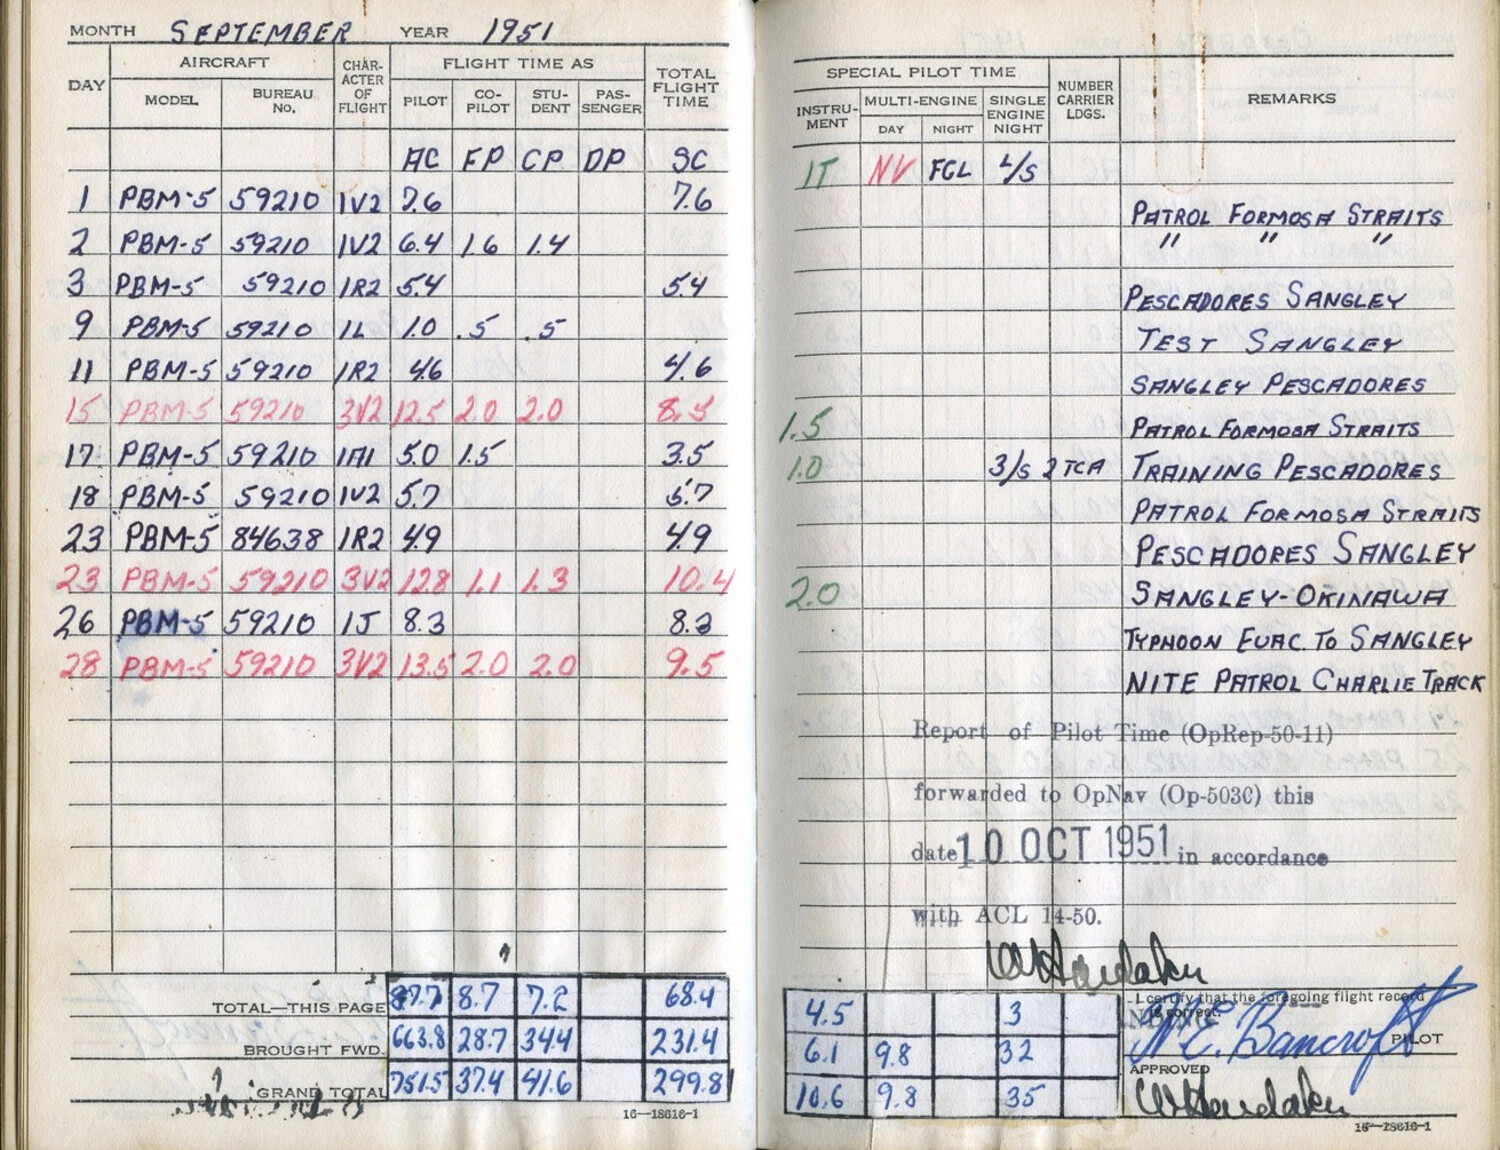 MONTH SEPTEMBER YEAR 1951
DAY AIRCRAFT CHAR-ACTER OF FLIGHT FLIGHT TIME AS TOTAL FLIGHT TIME
MODEL BUREAU No. PILOT CO-PILOT STU-DENT PAS-SENGER
AC FP CP DP SC
1 PBM-5 59210 1V2 7.6 7.6
2 PBM-5 59210 1V2 6.4 1.6 1.4
3 PBM-5 59210 1R2 5.4 5.4
9 PBM-5 59210 1L 1.0 .5 .5
11 PBM-5 59210 1R2 4.6 4.6
15 PBM-5 59210 3V2 12.5 2.0 2.0 8.5
17 PBM-5 59210 1A1 5.0 1.5 3.5
18 PBM-5 59210 1V2 5.7 5.7
23 PBM-5 84638 1R2 4.9 4.9
23 PBM-5 59210 3V2 12.8 1.1 1.3 10.4
26 PBM-5 59210 1J 8.3 8.3
28 PBM-5 59210 3V2 13.5 2.0 2.0 9.5
TOTAL—THIS PAGE 87.7 8.7 7.2 68.4
BROUGHT FWD. 663.8 28.7 34.4 231.4
GRAND TOTAL 751.5 37.4 41.6 299.8
16—18616-1
SPECIAL PILOT TIME NUMBER CARRIER LDGS. REMARKS
INSTRU-MENT MULTI-ENGINE SINGLE ENGINE NIGHT
DAY NIGHT
IT NV FCL L/S
PATROL FORMOSA STRAITS
" " "
PESCADORES SANGLEY
TEST SANGLEY
SANGLEY PESCADORES
1.5 PATROL FORMOSA STRAITS
1.0 3/S 2 TCA TRAINING PESCADORES
PATROL FORMOSA STRAITS
PESCADORES SANGLEY
2.0 SANGLEY-OKINAWA
TYPHOON EVAC. TO SANGLEY
NITE PATROL CHARLIE TRACK
Report of Pilot Time (OpRep-50-11)
forwarded to OpNav (Op-503C) this
date 10 OCT 1951 in accordance
with ACL 14-50.
W Hardaker
4.5 3
6.1 9.8 32
10.6 9.8 35
I certify that the foregoing flight record is correct.
R.E. Bancroft PILOT
APPROVED
W Hardaker
16—18616-1